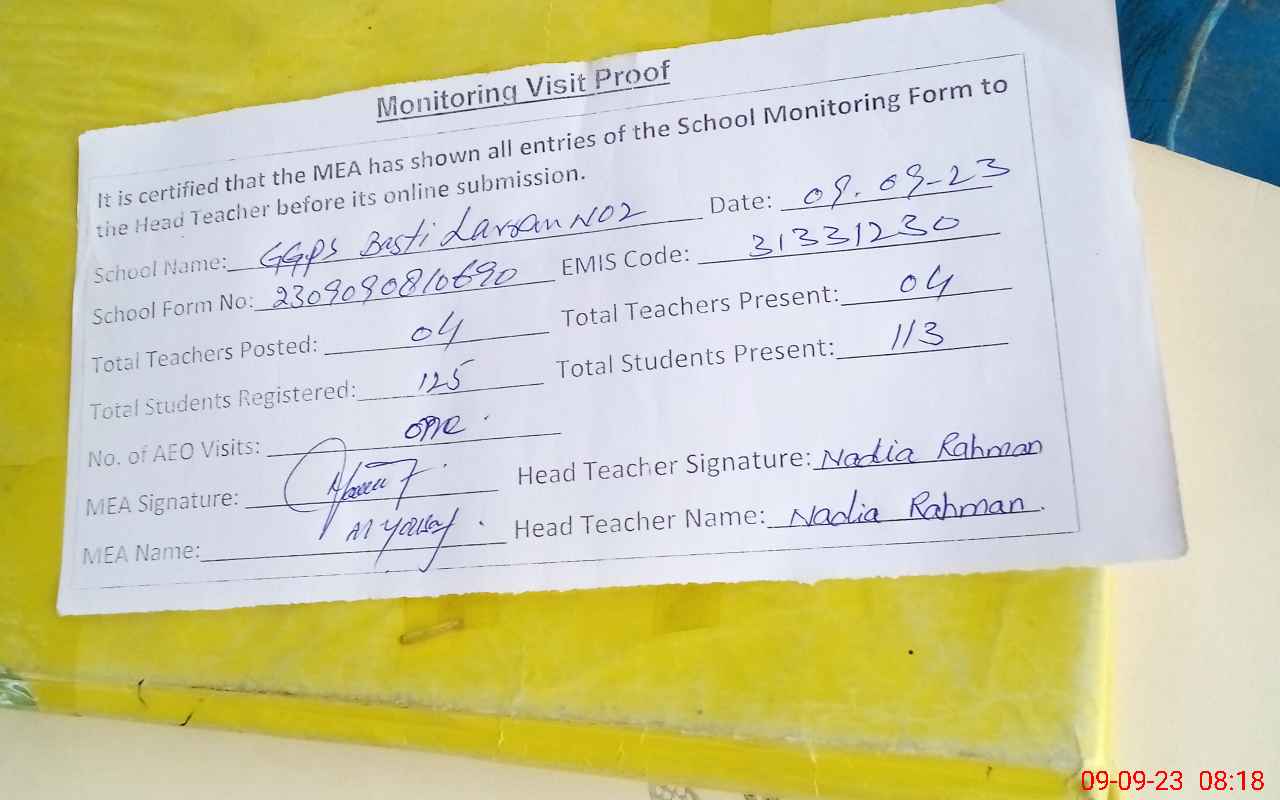 Monitoring Visit Proof
It is certified that the MEA has shown all entries of the School Monitoring Form to
the Head Teacher before its online submission.
School Name: GGPS Basti Larran NO2 Date: 09.09-23
School Form No: 2309090810690 EMIS Code: 31331230
Total Teachers Posted: 04 Total Teachers Present: 04
Total Students Registered: 125 Total Students Present: 113
No. of AEO Visits: one
MEA Signature: Head Teacher Signature: Nadia Rahman
MEA Name: M Yousaf Head Teacher Name: Nadia Rahman.
09-09-23 08:18